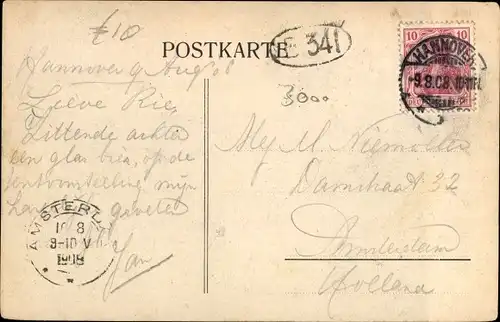 £10
POSTKARTE
E 341
10 10
HANNOVER
-9.8.08.
3000
Hannover 9 Aug 08
Lieve Rie,
Zittende achter
een glas bier, op de
tentoonstelling mijn
hartelijke groeten
Jan
AMSTERD
10 8
9-10 V
1908
Mej. M. Niemöller
Damstraat 32
Amsterdam
Holland